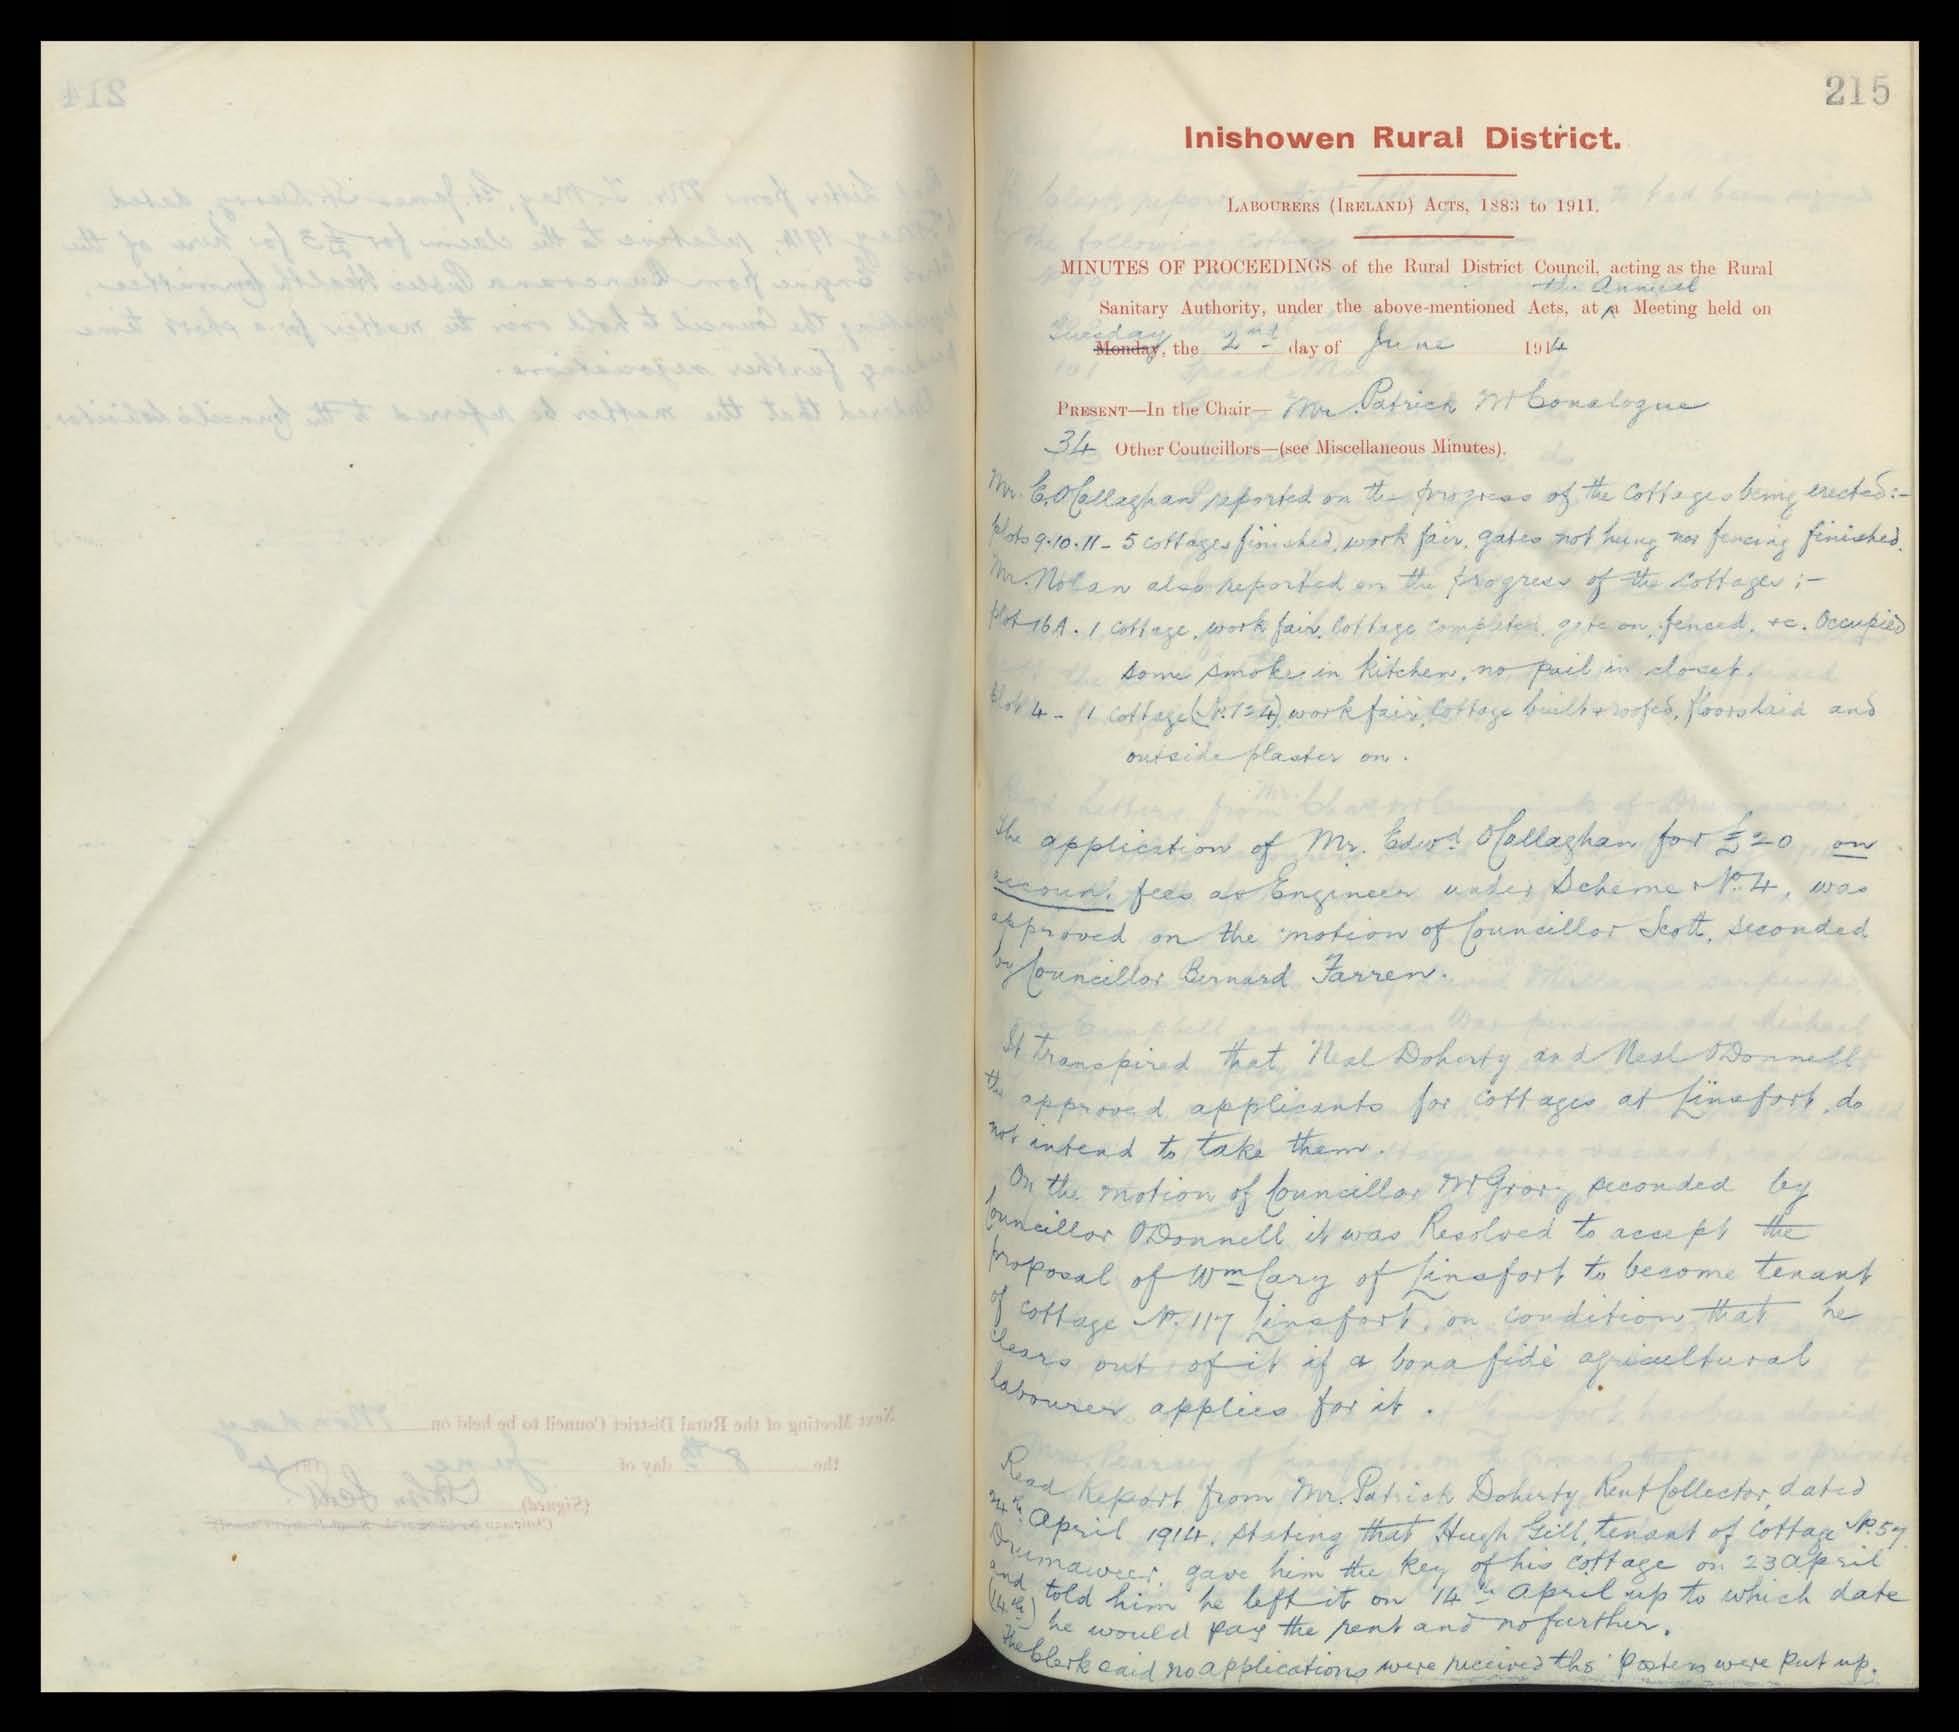 215
Inishowen Rural District.
LABOURERS (IRELAND) ACTS, 1883 to 1911.
MINUTES OF PROCEEDINGS of the Rural District Council, acting as the Rural
the Annual
Sanitary Authority, under the above-mentioned Acts, at a Meeting held on
Tuesday
Monday, the 2nd day of June 1914
PRESENT—In the Chair— Mr. Patrick McConalogue
34 Other Councillors—(see Miscellaneous Minutes).
Mr. E. O'Callaghan reported on the progress of the cottages being erected:-
Plots 9.10.11 - 5 cottages finished, work fair, gates not hung nor fencing finished.
Mr. Nolan also reported on the progress of the cottages :-
Plot 16A. 1 cottage, work fair, Cottage completed, gate on, fenced, &c. Occupied
some smoke in kitchen, no pail in closet.
Plot 4 - 1 cottage (No. 124) work fair, Cottage built & roofed, floors laid and
outside plaster on.
The application of Mr. Edwd. O'Callaghan for £20 on
account, fees as Engineer under Scheme No. 4, was
approved on the motion of Councillor Scott, seconded
by Councillor Bernard Farren.
It transpired that Neal Doherty and Neal O'Donnell
the approved applicants for cottages at Linsfort, do
not intend to take them.
On the motion of Councillor McGrory seconded by
Councillor O'Donnell it was Resolved to accept the
proposal of Wm Cary of Linsfort to become tenant
of cottage No. 117 Linsfort, on condition that he
clears out of it if a bona fide agricultural
labourer applies for it.
Read Report from Mr. Patrick Doherty Rent Collector, dated
24th April 1914, stating that Hugh Gill, tenant of Cottage No. 57
Drumaweer, gave him the key of his cottage on 23 April
and told him he left it on 14th April up to which date
(14th) he would pay the rent and no further.
The Clerk said no applications were received tho' posters were put up.